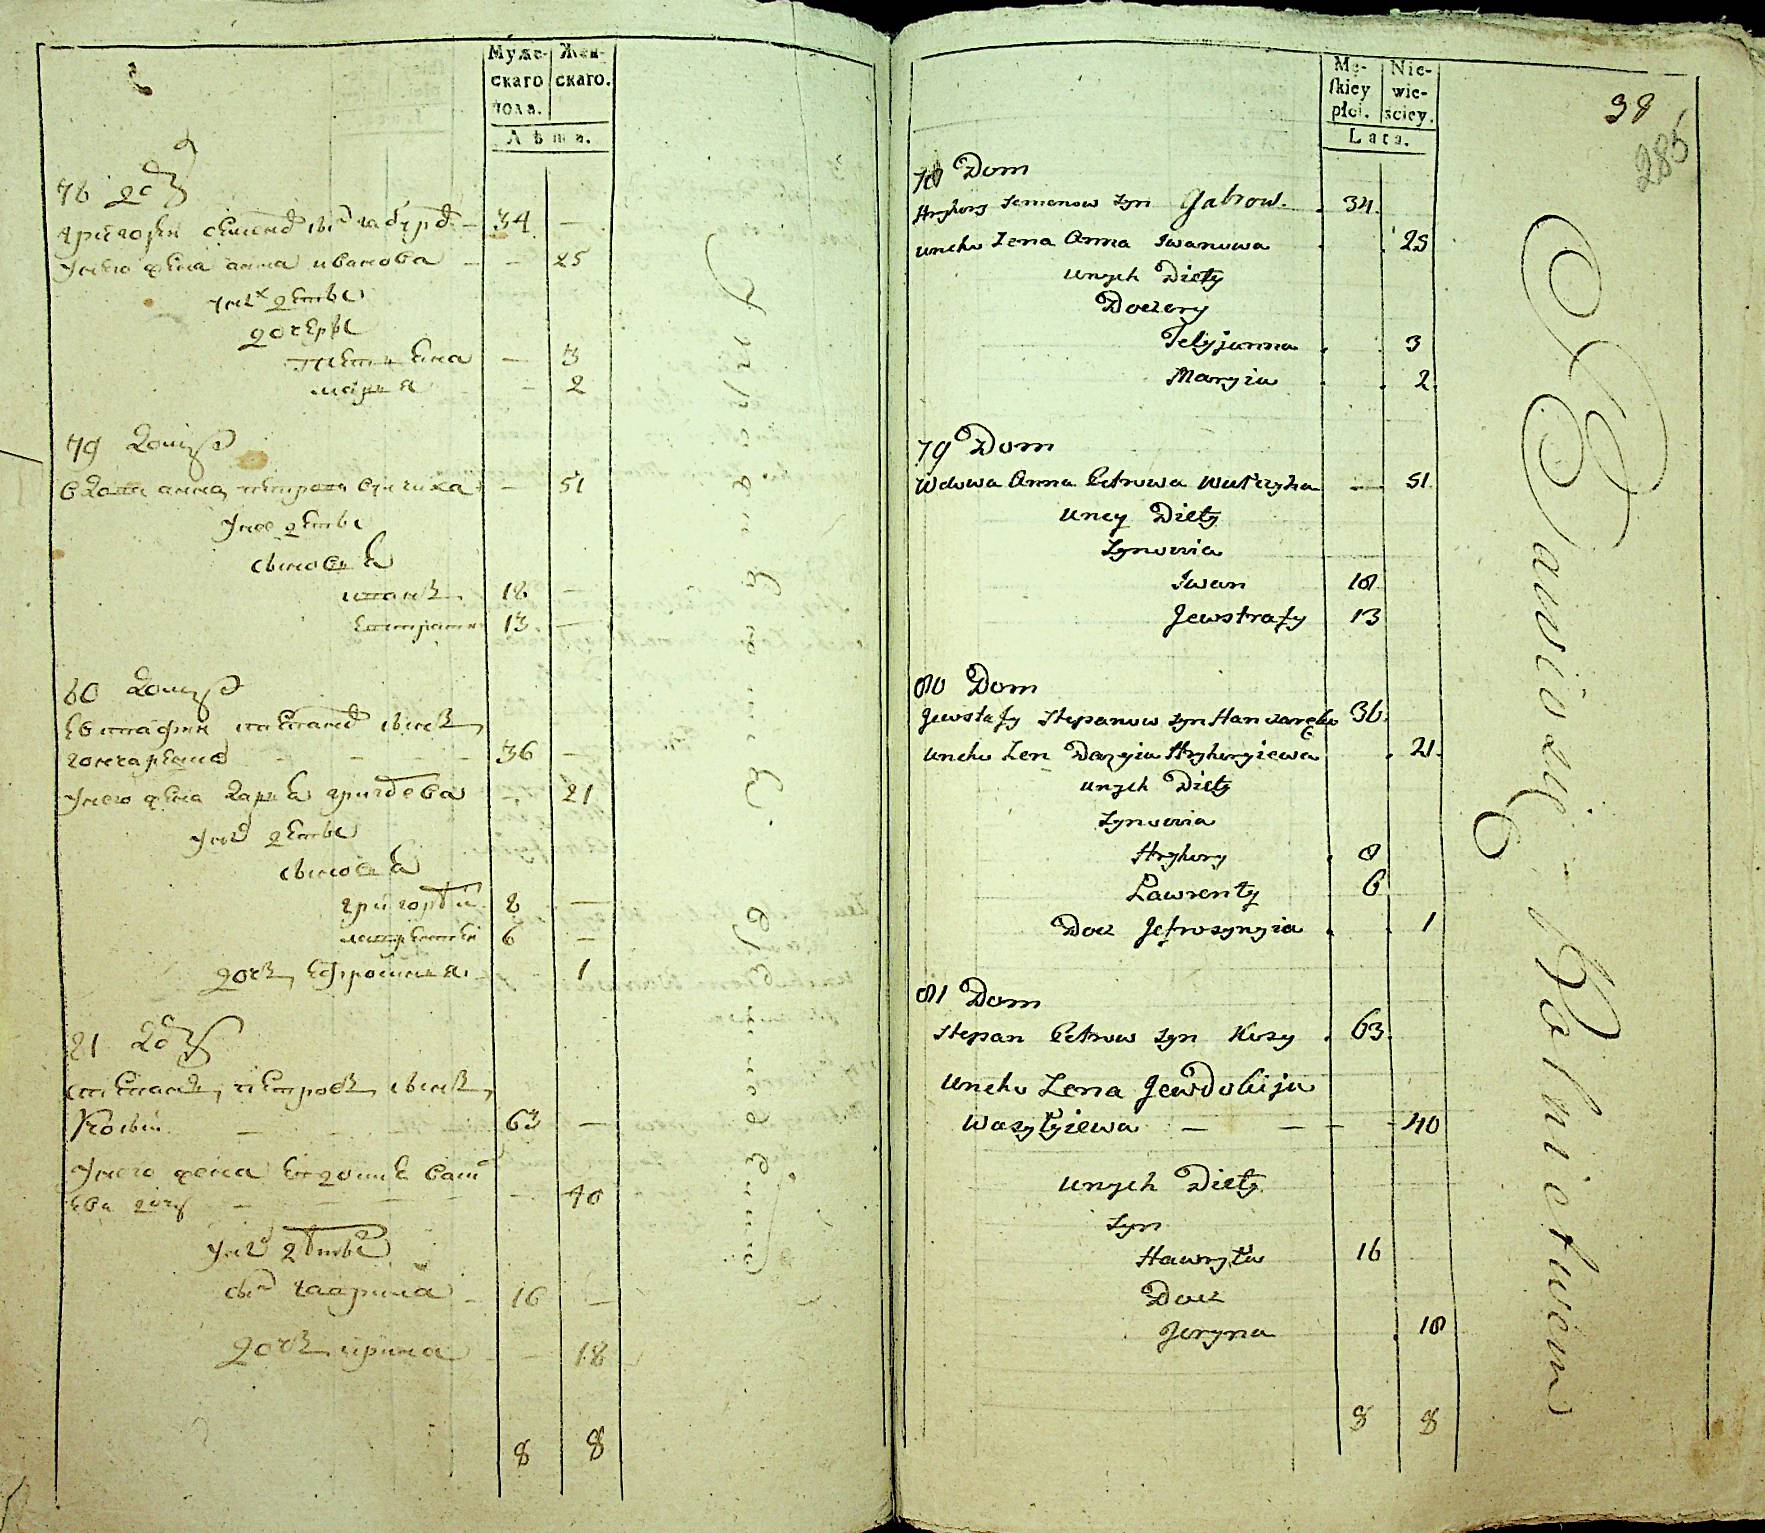 Муже-
скаго
пола.
Жен-
скаго.
Лѣта.
78 домъ
григорей семеновъ сынъ габровъ 34 —
унего жена анна иванова — 25
унихъ дети
дочери
татияна — 3
мария — 2
79 домъ
вдова анна петрова — 51
унее дети
сыновья
иванъ 18 —
13 —
80 домъ
евстафий степановъ сынъ
гончаренко 36 —
унего жена дарья григорева — 21
унихъ дети
сыновья
григорей 8 —
лаврентей 6 —
дочь ефросиния 1
81 домъ
степанъ петровъ сынъ
Косый 63 —
унего жена евдокия васи
ева дочь — 40
унихъ дети
сынъ гаврила 16 —
дочь ирина — 18
8 8
Mę-
skiey
płci.
Nie-
wie-
sciey.
Lata.
38
285
78 Dom
Hryhory Semenow syn Gabrow. 34
uneho Zena Anna Iwanowa 25
unych Diety
Doczery
Tetyjanna 3
Maryia 2
79 Dom
Wdowa Anna Petrowa — 51
uney Diety
Synowia
Iwan 18
Jewstrafy 13
80 Dom
Jewstafy Stepanow syn Hanczarenko 36
uneho Zen Daryia Hryhoryiewa 21
unych Diety
Synowia
Hryhory 8
Lawrenty 6
Docz Jefrosynyia 1
81 Dom
Stepan Petrow syn Kosy 63
uneho Zena Jewdokija
Wasyłyiewa — — — 40
unych Diety
Syn
Hawryło 16
Docz
Jeryna 18
8 8